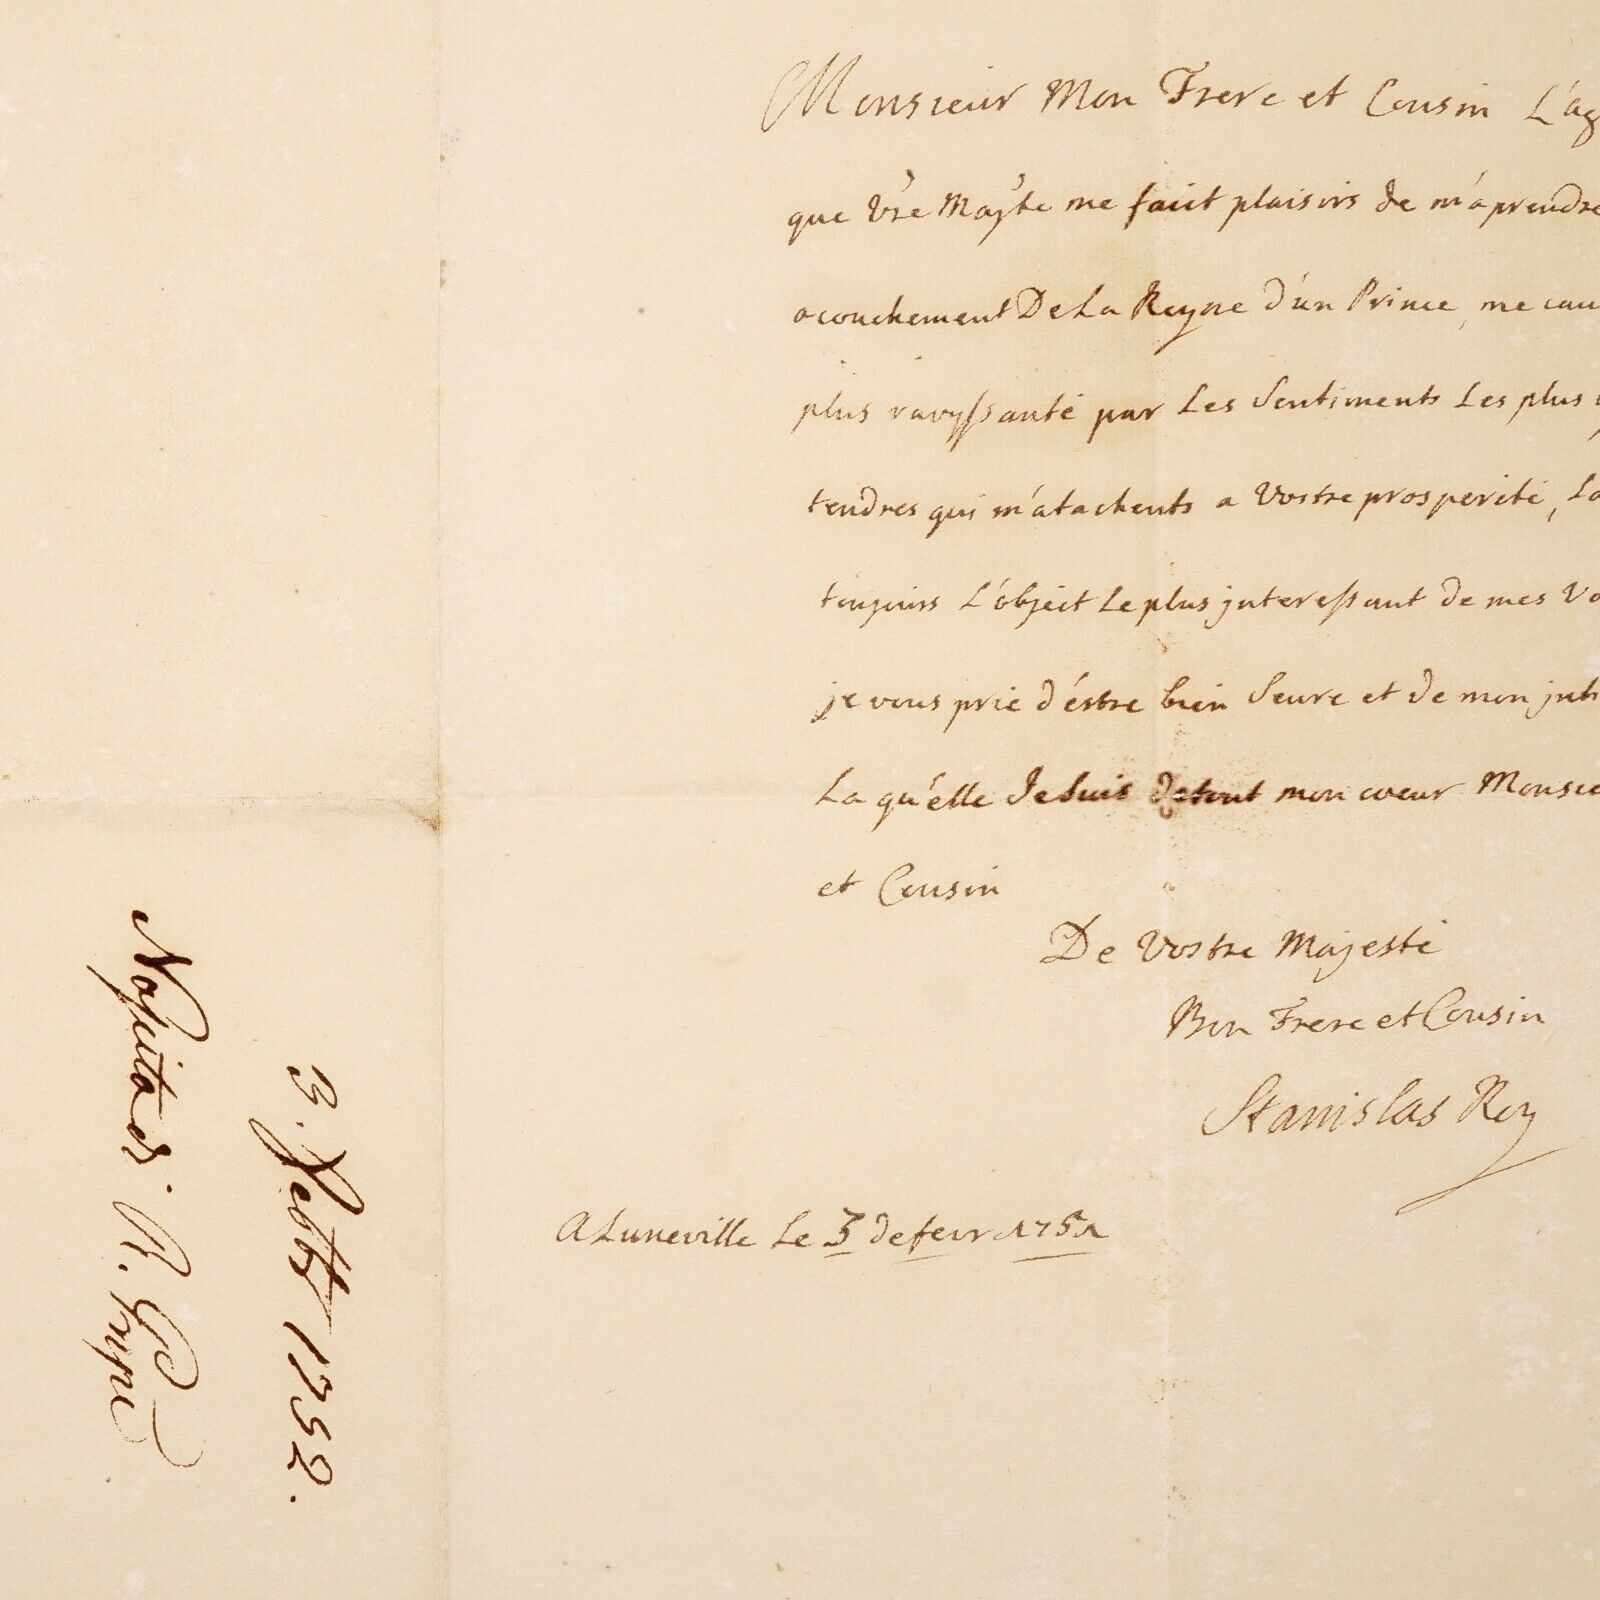 Monsieur Mon Frere et Cousin L'ag
que Vre Majte me faict plaisirs de m'aprendre
acouchement De La Reyne d'un Prince, me cau
plus ravyssante par Les Sentiments Les plus
tendres qui m'atachents a Vostre prosperité, La
toujours L'object Le plus jnteressant de mes Vo
je vous prie d'éstre bien Seure et de mon jnb
La qu'élle Je Suis de tout mon coeur Monsie
et Cousin
De Vostre Majesté
Bon Frere et Cousin
Stanislas Roy
A Luneville Le 3 de fevr 1751
3. 1752.